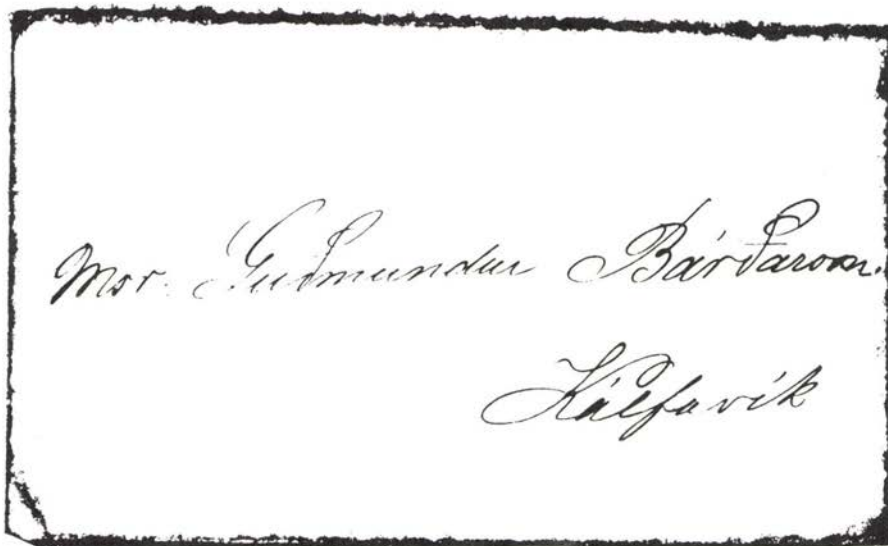 Msr. Guðmundur Bárðarson.
Kálfavík